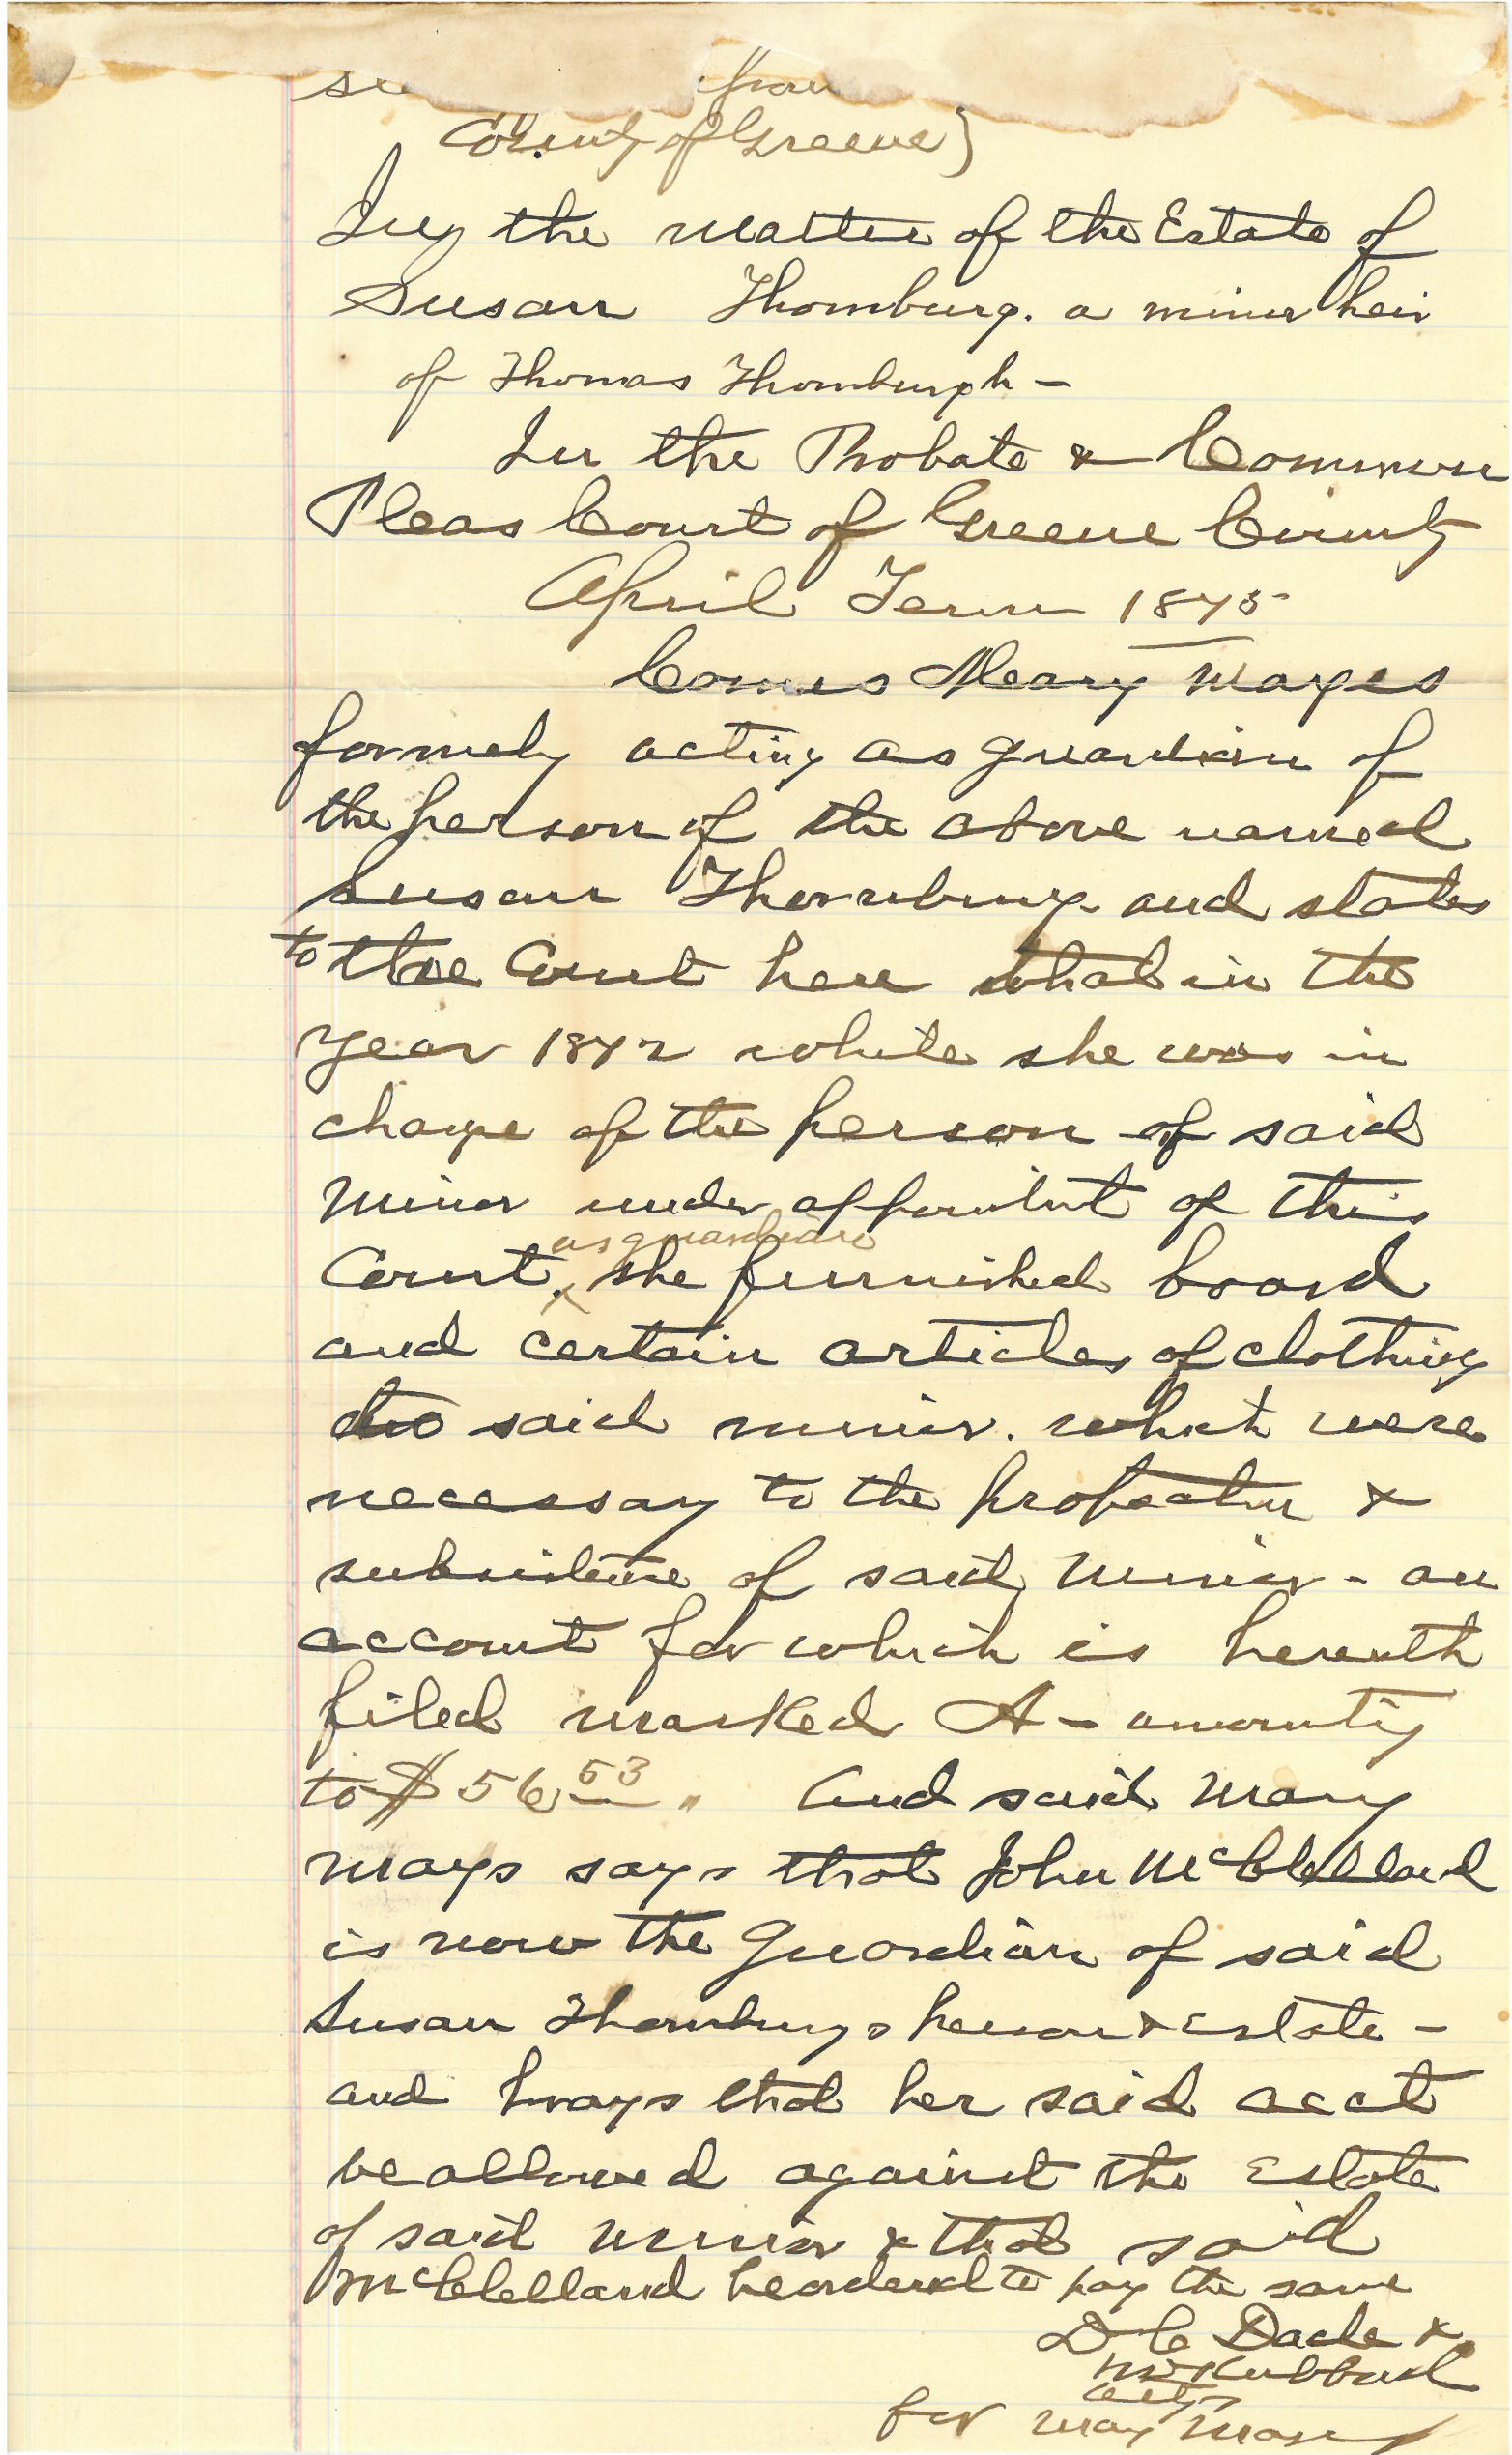 County of Greene)
In the matter of the Estate of
Susan Thornburg. a minor heir
of Thomas Thornburgh -
In the Probate & Common
Pleas Court of Greene County
April Term 1875
Comes Mary Mayes
formely acting as guardian of
the person of the above named
Susan Thornburg and states
to the Court here that in the
year 1872 while she was in
charge of the person of said
minor under appointmt of this
as guardian
Court, she furnished board
and certain articles of clothing
to said minor. which were
necessary to the protection &
subsistence of said minor - an
account for which is herewith
filed marked A - amounting
to $56 53. And said Mary
Mays says that John McClelland
is now the Guardian of said
Susan Thornburgs person & Estate -
and prays that her said acct
be allowed against the Estate
of said minor & that said
McClelland be ordered to pay the same
D C Dade &
Hubbard
attys
for Mary Mays